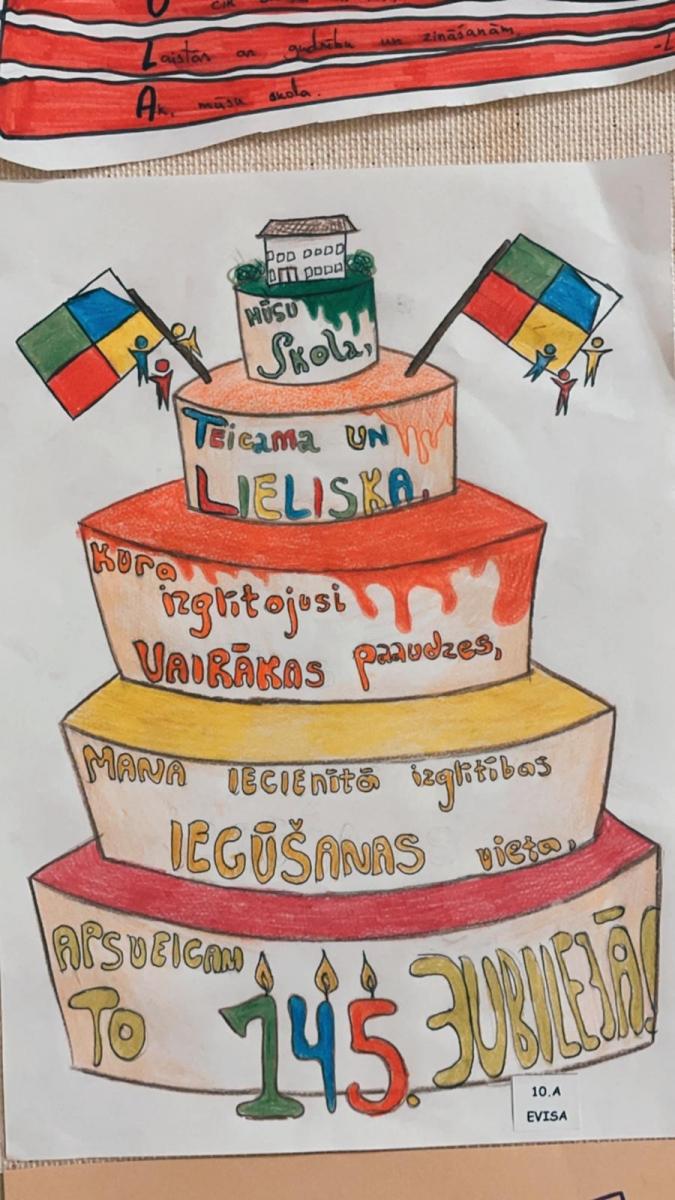 Laistās ar gudrību un zināšanām.
Ak, mūsu skola.
MŪSU
Skola,
TEicama UN
LIELISKA,
Kura
izglītojusi
VAIRĀKAS paaudzes,
MANA IECIENītā izglītības
IEGŪŠANAS vieta,
APSVEICAM
TO 145. JUBILEJĀ!
10.A
EVISA